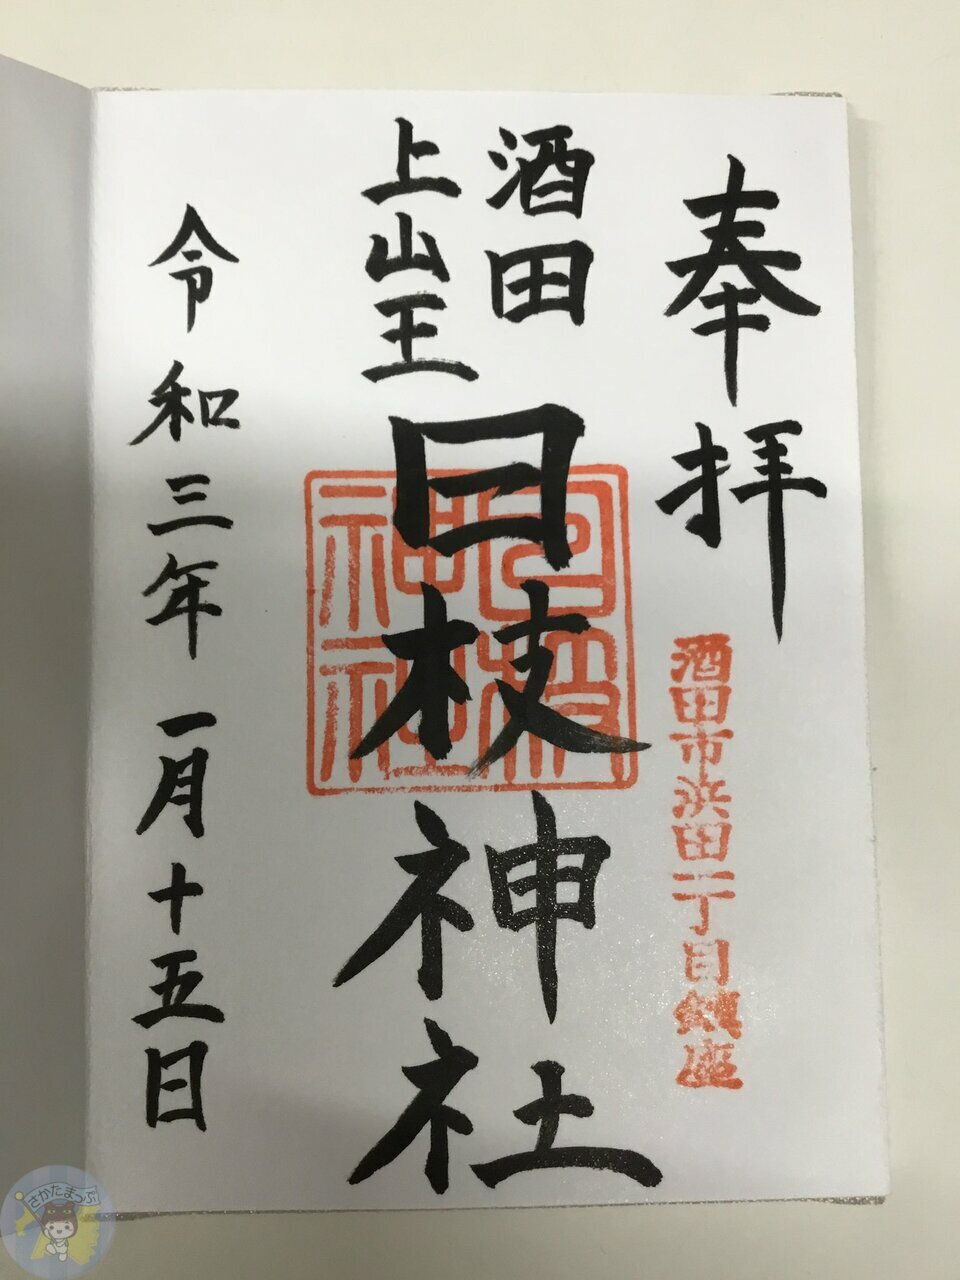 奉拝
酒田市浜田一丁目鎮座
酒田
上山王
日枝神社
日枝神社
令和三年一月十五日
さかたまっぷ